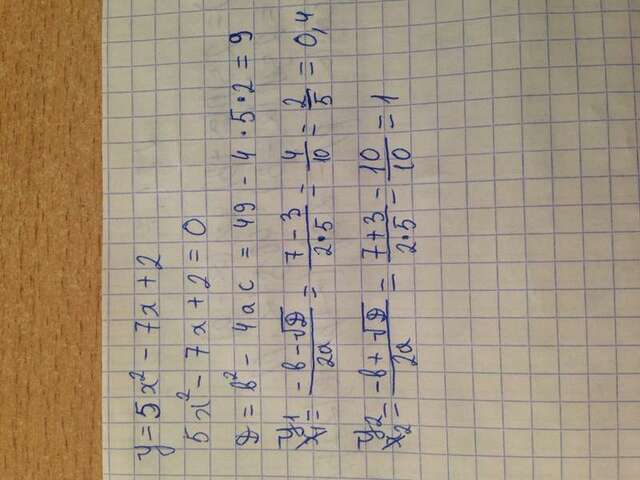 y = 5x² - 7x + 2
5x² - 7x + 2 = 0
D = b² - 4ac = 49 - 4·5·2 = 9
y₁ x₁ = (-b - √D)/2a = (7 - 3)/(2·5) = 4/10 = 2/5 = 0,4
y₂ x₂ = (-b + √D)/2a = (7 + 3)/(2·5) = 10/10 = 1